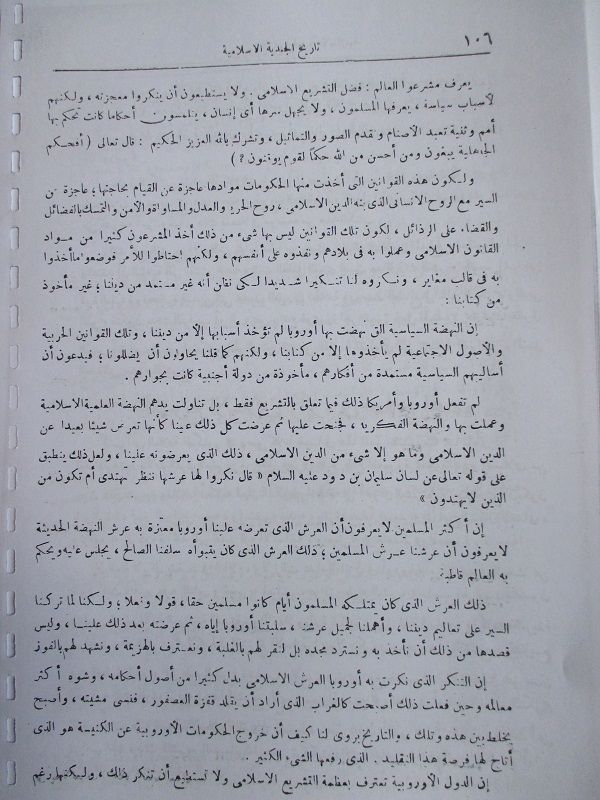 ١٠٦
تاريخ الجندية الاسلامية
يعرف مشرعوا العالم : فضل التشريع الاسلامى . ولا يستطيعون أن ينكروا معجزته ، ولكنهم
لأسباب سياسة ، يعرفها المسلمون ، ولا يجهل سرها أى إنسان ، يتلمسون أحكاما كانت تحكم بها
أمم وثنية تعبد الأصنام وتقدم الصور والتماثيل ، وتشرك بالله العزيز الحكيم : قال تعالى ( أفحكم
الجاهلية يبغون ومن أحسن من الله حكما لقوم يوقنون ? )
ولكون هذه القوانين التى أخذت منها الحكومات موادها عاجزة عن القيام بحاجتها ؛ عاجزة عن
السير مع الروح الانسانى الذى بثه الدين الاسلامى ، روح الحرية والعدل والمساواة والأمن والتمسك بالفضائل
والقضاء على الرذائل ، لكون تلك القوانين ليس بها شىء من ذلك أخذ المشرعون كثيرا من مواد
القانون الاسلامى وعملوا به فى بلادهم ونفذوه على أنفسهم ، ولكنهم احتاطوا للأمر فوضعوا ما أخذوا
به فى قالب مغاير ، ونكروه لنا تنكيرا شديدا لكى نظن أنه غير مستمد من ديننا ؛ غير مأخوذ
من كتابنا :
إن النهضة السياسية التى نهضت بها أوروبا لم تؤخذ أسبابها إلا من ديننا ، وتلك القوانين الحربية
والأصول الاجتماعية لم يأخذوها إلا من كتابنا ، ولكنهم كما قلنا يحاولون أن يضللونا ؛ فيدعون أن
أساليبهم السياسية مستمدة من أفكارهم ، مأخوذة من دولة أجنبية كانت بجوارهم .
لم تفعل أوروبا وأمريكا ذلك فيما تعلق بالتشريع فقط ، بل تناولت يدهم النهضة العلمية الاسلامية
وعملت بها والنهضة الفكرية ، فجنحت عليها ثم عرضت كل ذلك علينا كأنها تعرض شيئا بعيدا عن
الدين الاسلامى وما هو إلا شىء من الدين الاسلامى ، ذلك الذى يعرضونه علينا ، ولعل ذلك ينطبق
على قوله تعالى عن لسان سليمان بن داود عليه السلام « قال نكروا لها عرشها ننظر أتهتدى أم تكون من
الذين لايهتدون »
إن أكثر المسلمين لا يعرفون أن العرش الذى تعرضه علينا أوروبا معتزة به عرش النهضة الحديثة
لايعرفون أن عرشنا عرش المسلمين ؛ ذلك العرش الذى كان يتبوأه سلفنا الصالح ، يجلس عليه ويحكم
به العالم قاطبة
ذلك العرش الذى كان يمتلكه المسلمون أيام كانوا مسلمين حقا ، قولا وفعلا ؛ ولكنا لما تركنا
السير على تعاليم ديننا ، وأهملنا تجميل عرشنا ، سلبتنا أوروبا إياه ، ثم عرضته بعد ذلك علينا ، وليس
قصدها من ذلك أن نأخذ به ونسترد مجده بل لنقر لهم بالغلبة ، ونعترف بالهزيمة ، ونشهد لهم بالفوز
إن التنكر الذى نكرت به أوروبا العرش الاسلامى بدل كثيرا من أصول أحكامه ، وشوه أكثر
معالمه وحين فعلت ذلك أصبحت كالغراب الذى أراد أن يقلد قفزة العصفور ، فنسى مشيته ، وأصبح
يخلط بين هذه وتلك ، والتاريخ يروى لنا كيف أن خروج الحكومات الأوروبية عن الكنيسة هو الذى
أتاح لها فرصة هذا التقليد . الذى رفعها الشىء الكثير .
إن الدول الأوروبية تعترف بعظمة التشريع الاسلامى ولا تستطيع أن تنكر ذلك ، ولكنها رغم